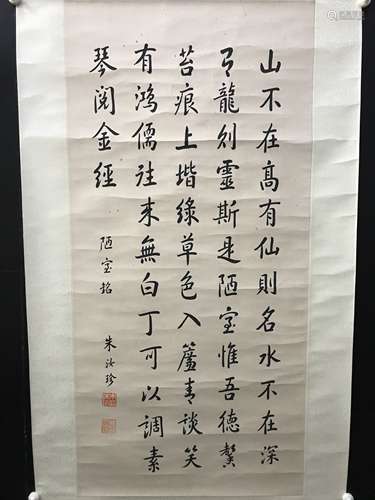 山不在髙有仙則名水不在深
有龍則靈斯是陋室惟吾德馨
苔痕上堦綠草色入簾青談笑
有鴻儒往來無白丁可以調素
琴閱金經
陋室銘
朱汝珍